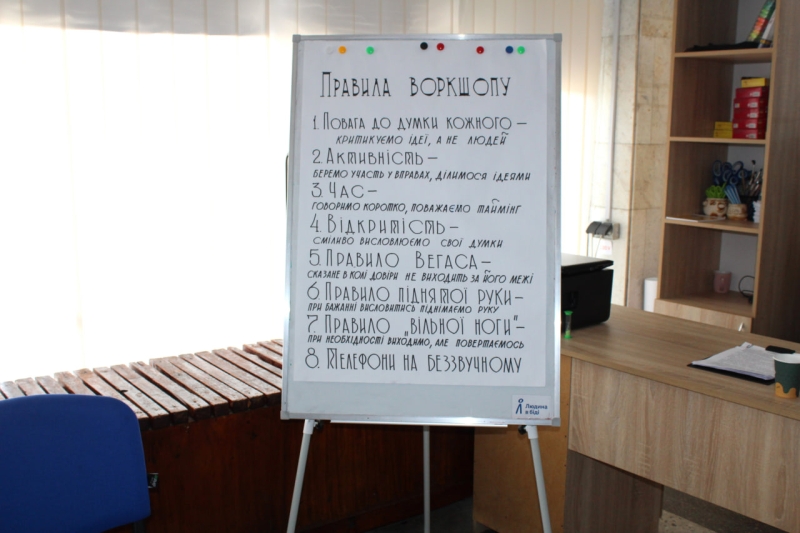 Правила воркшопу
1. Повага до думки кожного –
критикуємо ідеї, а не людей
2. Активність –
беремо участь у вправах, ділимося ідеями
3. Час –
говоримо коротко, поважаємо таймінг
4. Відкритість –
сміливо висловлюємо свої думки
5. Правило Вегаса –
сказане в колі довіри не виходить за його межі
6 Правило піднятої руки –
при бажанні висловитись піднімаємо руку
7 Правило „вільної ноги" –
при необхідності виходимо, але повертаємось
8. Телефони на беззвучному
Людина
в біді